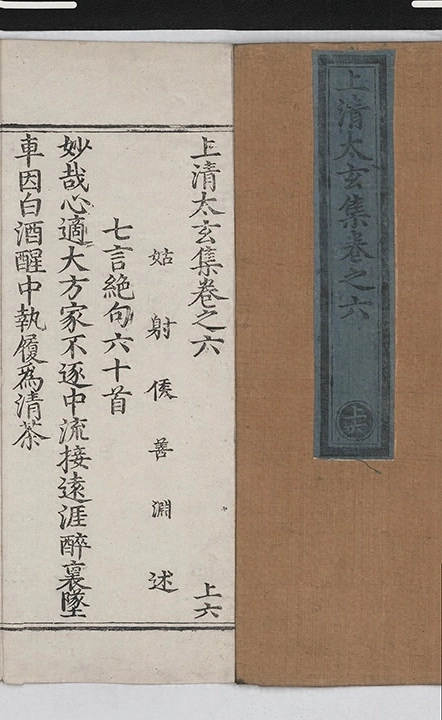 上清太玄集卷之六
上六
上清太玄集卷之六
上六
姑射侯善淵述
七言絶句六十首
妙哉心適大方家不逐中流接遠涯醉裏墜
車因白酒醒中執履為清茶